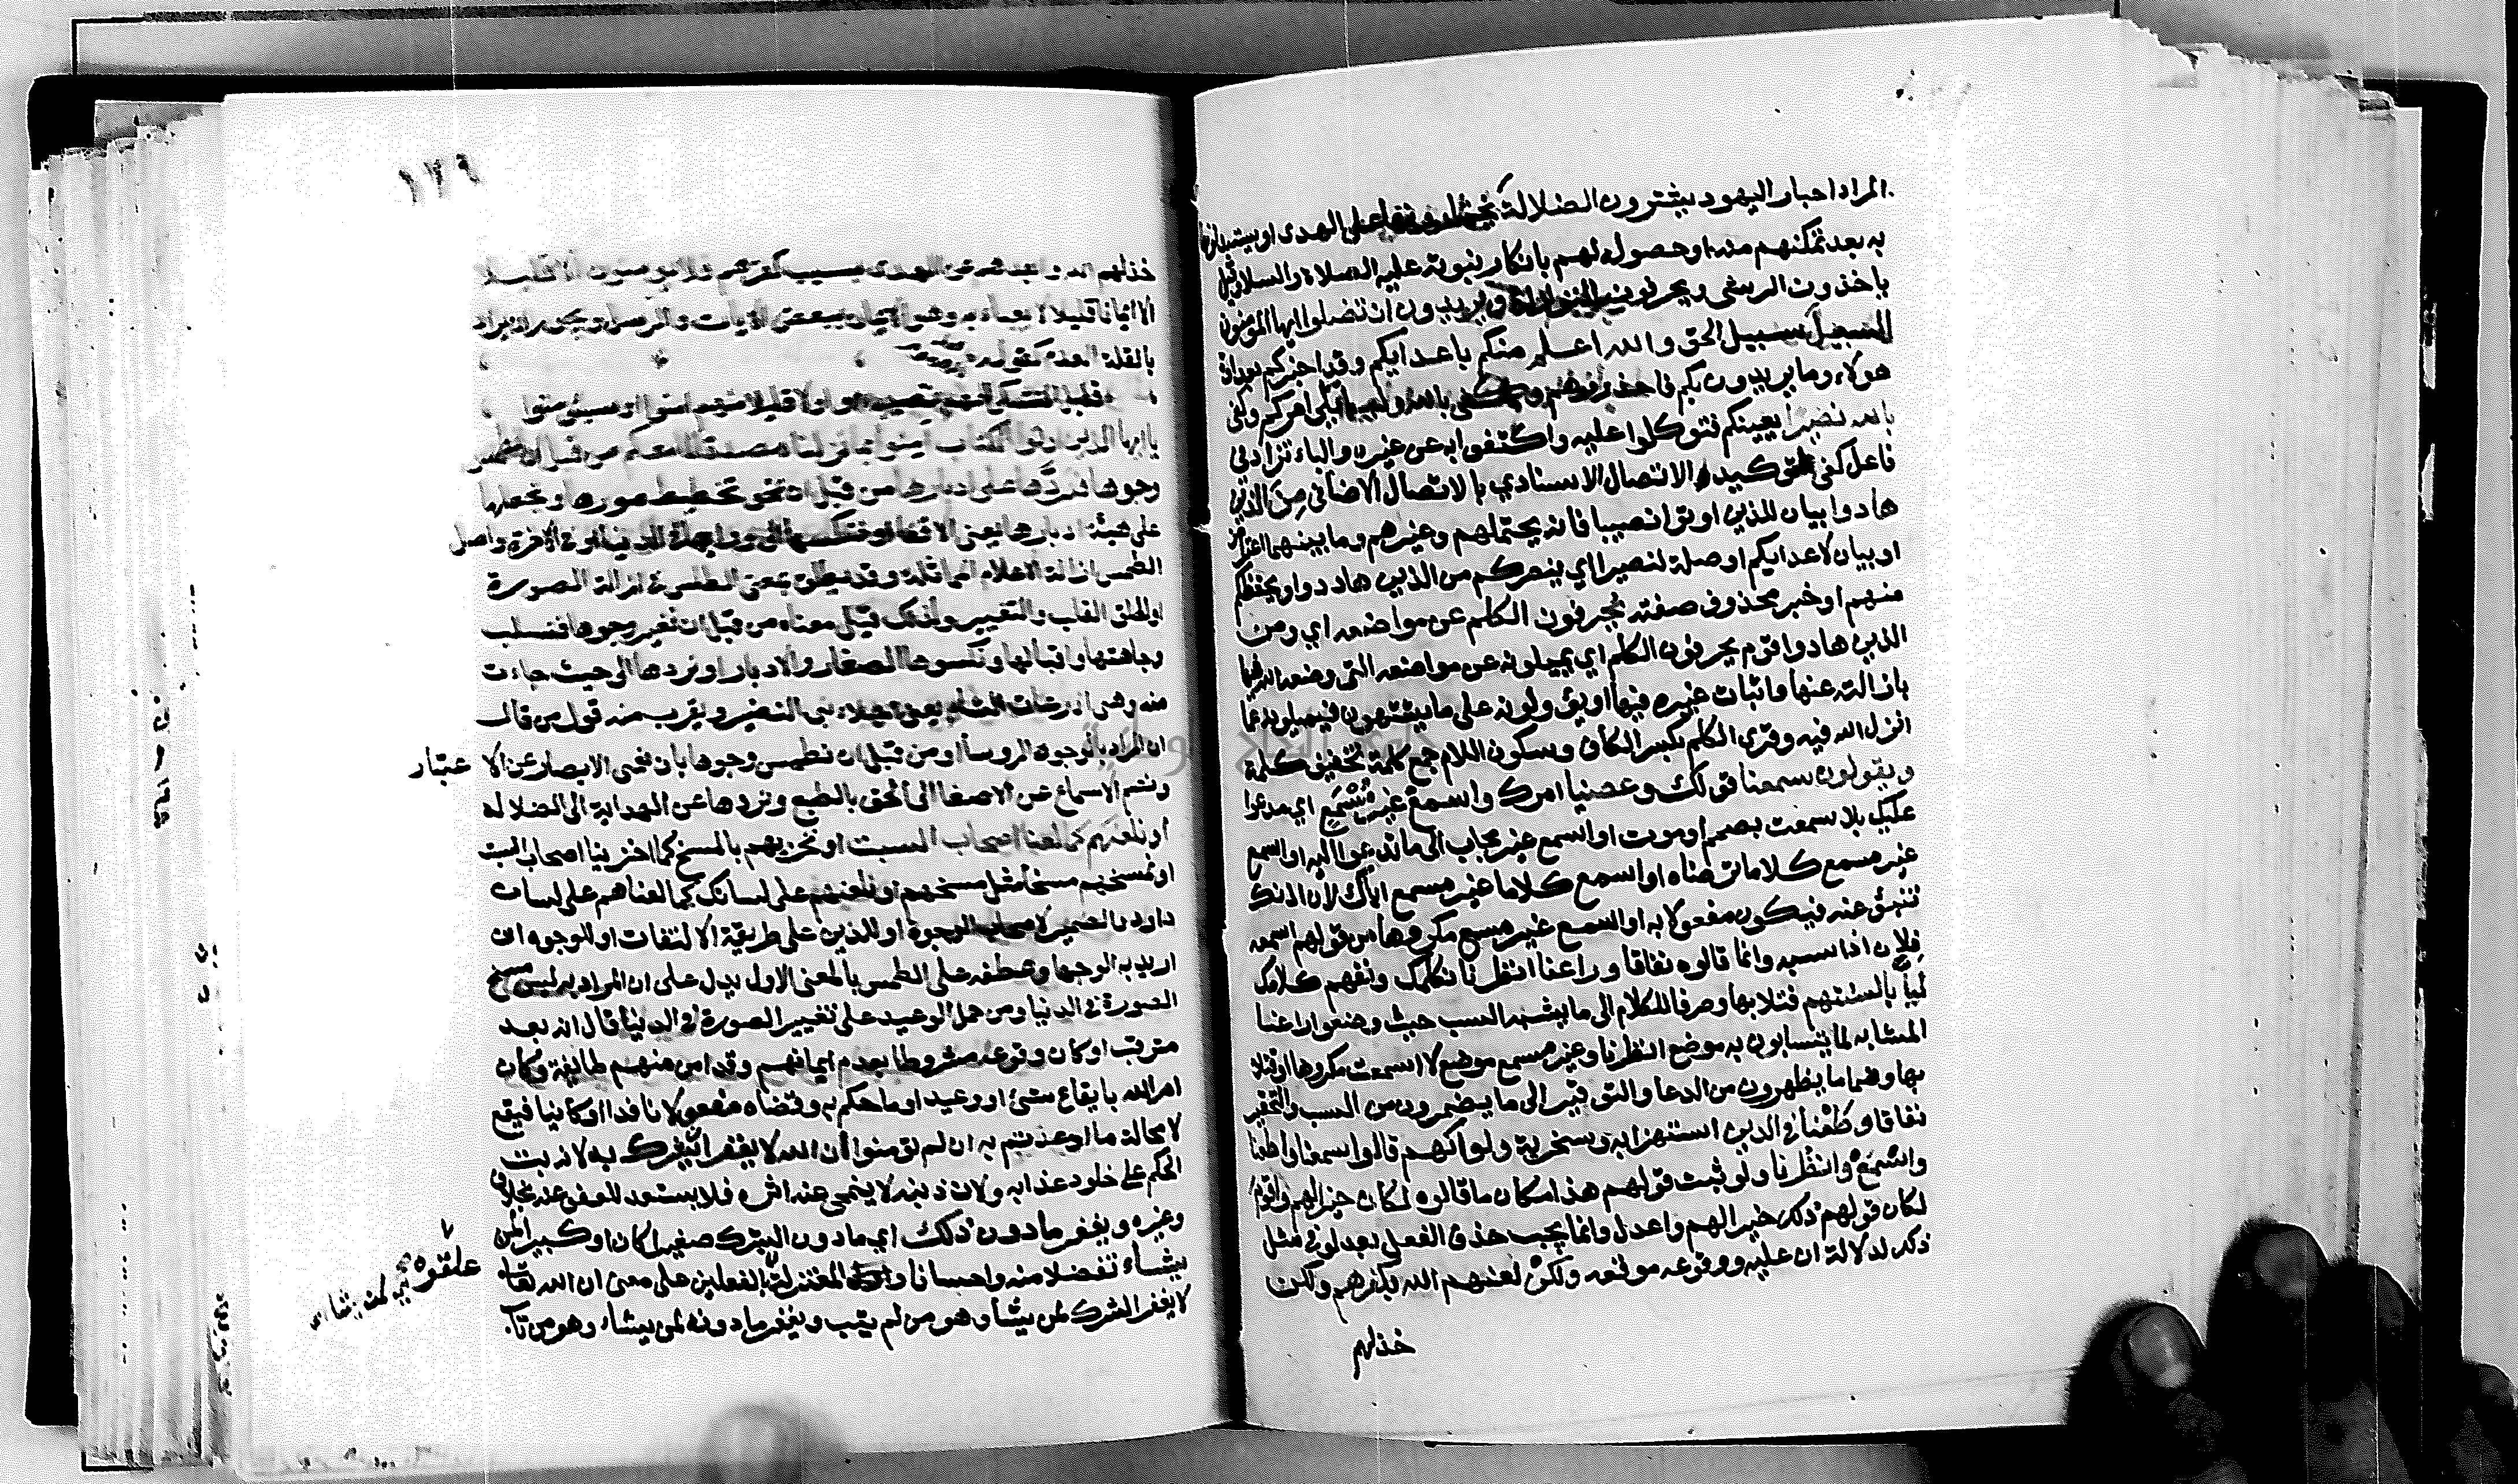 المراد احبار اليهود يشترون الضلالة يختارونها على الهدى او يستبدلونها
به بعد تمكنهم منه او حصوله لهم بانكار نبوته عليه الصلاة والسلام وقيل
ياخذون الرشى ويحرفون التوراة ويريدون ان تضلوا ايها المؤمنون
السبيل سبيل الحق والله اعلم منكم باعدايكم وقد اخبركم بعداوة
هولاء وما يريدون بكم فاحذروهم وكفى بالله وليا يلي امركم وكفى
بالله نصيرا يعينكم فتوكلوا عليه واكتفوا به عن غيره والباء تزاد في
فاعل كفى لتوكيد الاتصال الاسنادي بالاتصال الاضافى من الذين
هادوا بيان للذين اوتوا نصيبا فانه يحتملهم وغيرهم وما بينهما اعتراض
او بيان لاعدايكم او صلة لنصيرا اي ينصركم من الذين هادوا ويحفظكم
منهم او خبر محذوف صفته يحرفون الكلم عن مواضعه اي ومن
الذين هادوا قوم يحرفون الكلم اي يميلونه عن مواضعه التي وضعه الله فيها
بازالته عنها واثبات غيره فيها او يؤولونه على ما يشتهون فيميلونه عما
انزل الله فيه وقرى الكلم بكسر الكاف وسكون اللام جمع كلمة تخفيف كلمة
ويقولون سمعنا قولك وعصينا امرك واسمع غير مُسْمَعٍ اي مدعوا
عليك بلا سمعت بصمم او موت او اسمع غير مجاب الى ما تدعوا اليه او اسمع
غير مسمع كلاما ترضاه او اسمع كلاما غير مسمع اياك لان اذنك
تنبؤ عنه فيكون مفعولا به او اسمع غير مسمع مكروها من قولهم اسمعه
فلان اذا سبه وانما قالوه نفاقا وراعنا انظرنا نكلمك ونفهم كلامك
ليّا بالسنتهم فتلا بها وصرفا للكلام الى ما يشبه السب حيث وضعوا راعنا
المشابه لما يتسابون به موضع انظرنا وغير مسمع موضع لا اسمعت مكروها او فتلا
بها وضما ما يظهرون من الدعا والتوقير الى ما يضمرون من السب والتحقير
نفاقا وطَعْنا في الدين استهزا به وسخرية ولو انهم قالوا سمعنا واطعنا
واسْمَعْ وانظُرنا ولو ثبت قولهم هذا مكان ما قالوه لكان خيرا لهم واقوم
لكان قولهم ذلك خيرا لهم واعدل وانما يجب حذف الفعل بعد لو في مثل
ذلك لدلالة ان عليه ووقوعه موقعه ولكن لعنهم الله بكفرهم ولكن
خذلهم
١٢٩
خذلهم الله وابعدهم عن الهدى بسبب كفرهم فلا يؤمنون الا قليلا
الا ايمانا قليلا لا يعباء به وهو الايمان ببعض الآيات والرسل ويجوز ان يراد
بالقلة العدم كقوله
قليل التشكى للمهم يصيبه او الا قليلا منهم امنوا او سيؤمنوا
يا ايها الذين اوتوا الكتاب امنوا بما نزلنا مصدقا لما معكم من قبل ان نطمس
وجوها فنردّها على ادبارها من قبل ان نمحو تخطيط صورها ونجعلها
على هيئة ادبارها يعني الاقفا او ننكسها الى ورايها في الدنيا او في الاخرة واصل
الطمس ازالة الاعلام الماثلة وقد يطلق بمعنى الطلس في ازالة الصورة
ولمطلق القلب والتغيير ولذلك قيل معناه من قبل ان نغير وجوها فنسلب
وجاهتها واقبالها ونكسوها الصغار والادبار او نردها الى حيث جاءت
منه وهي اذرعات الشام يعني اجلاء بني النضير ويقرب منه قول من قال
ان المراد بالوجوه الروسا او من قبل ان نطمس وجوها بان نعمى الابصار عن الا عتبار
ونصم الاسماع عن الاصغا الى الحق بالطبع ونردها عن الهداية الى الضلاله
او نلعنهم كما لعنا اصحاب السبت او نخزيهم بالمسخ كما اخزينا اصحاب السبت
او نمسخهم مسخا مثل مسخهم او نلعنهم على لسانك كما لعناهم على لسان
داود والضمير لاصحاب الوجوه او للذين على طريقة الالتفات او للوجوه ان
اريد به الوجها وعطفه على الطمس بالمعنى الاول يدل على ان المراد به ليس مسخ
الصورة في الدنيا ومن حمل الوعيد على تغيير الصورة في الدنيا قال انه بعد
مترقب او كان وقوعه مشروطا بعدم ايمانهم وقد امن منهم طائفة وكان
امر الله بايقاع شئ او وعيد او ما حكم به وقضاه مفعولا نافدا او كاينا فيقع
لا محالة ما اوعدتم به ان لم تؤمنوا ان الله لا يغفر ان يُشرك به لانه بت
الحكم على خلود عذابه ولان ذنبه لا ينمحى عنه اثره فلا يستعد للعفو عنه بخلاف
وغيره ويغفر ما دون ذلك اي ما دون الشرك صغيرا كان او كبيرا لمن
يشاء تفضلا منه واحسانا والمعتزلة بالفعلين على معنى ان الله تعالى
علقوه
لا يغفر الشرك لمن يشأ وهو من لم يتب ويغفر ما دونه لمن يشاء وهو من تاب